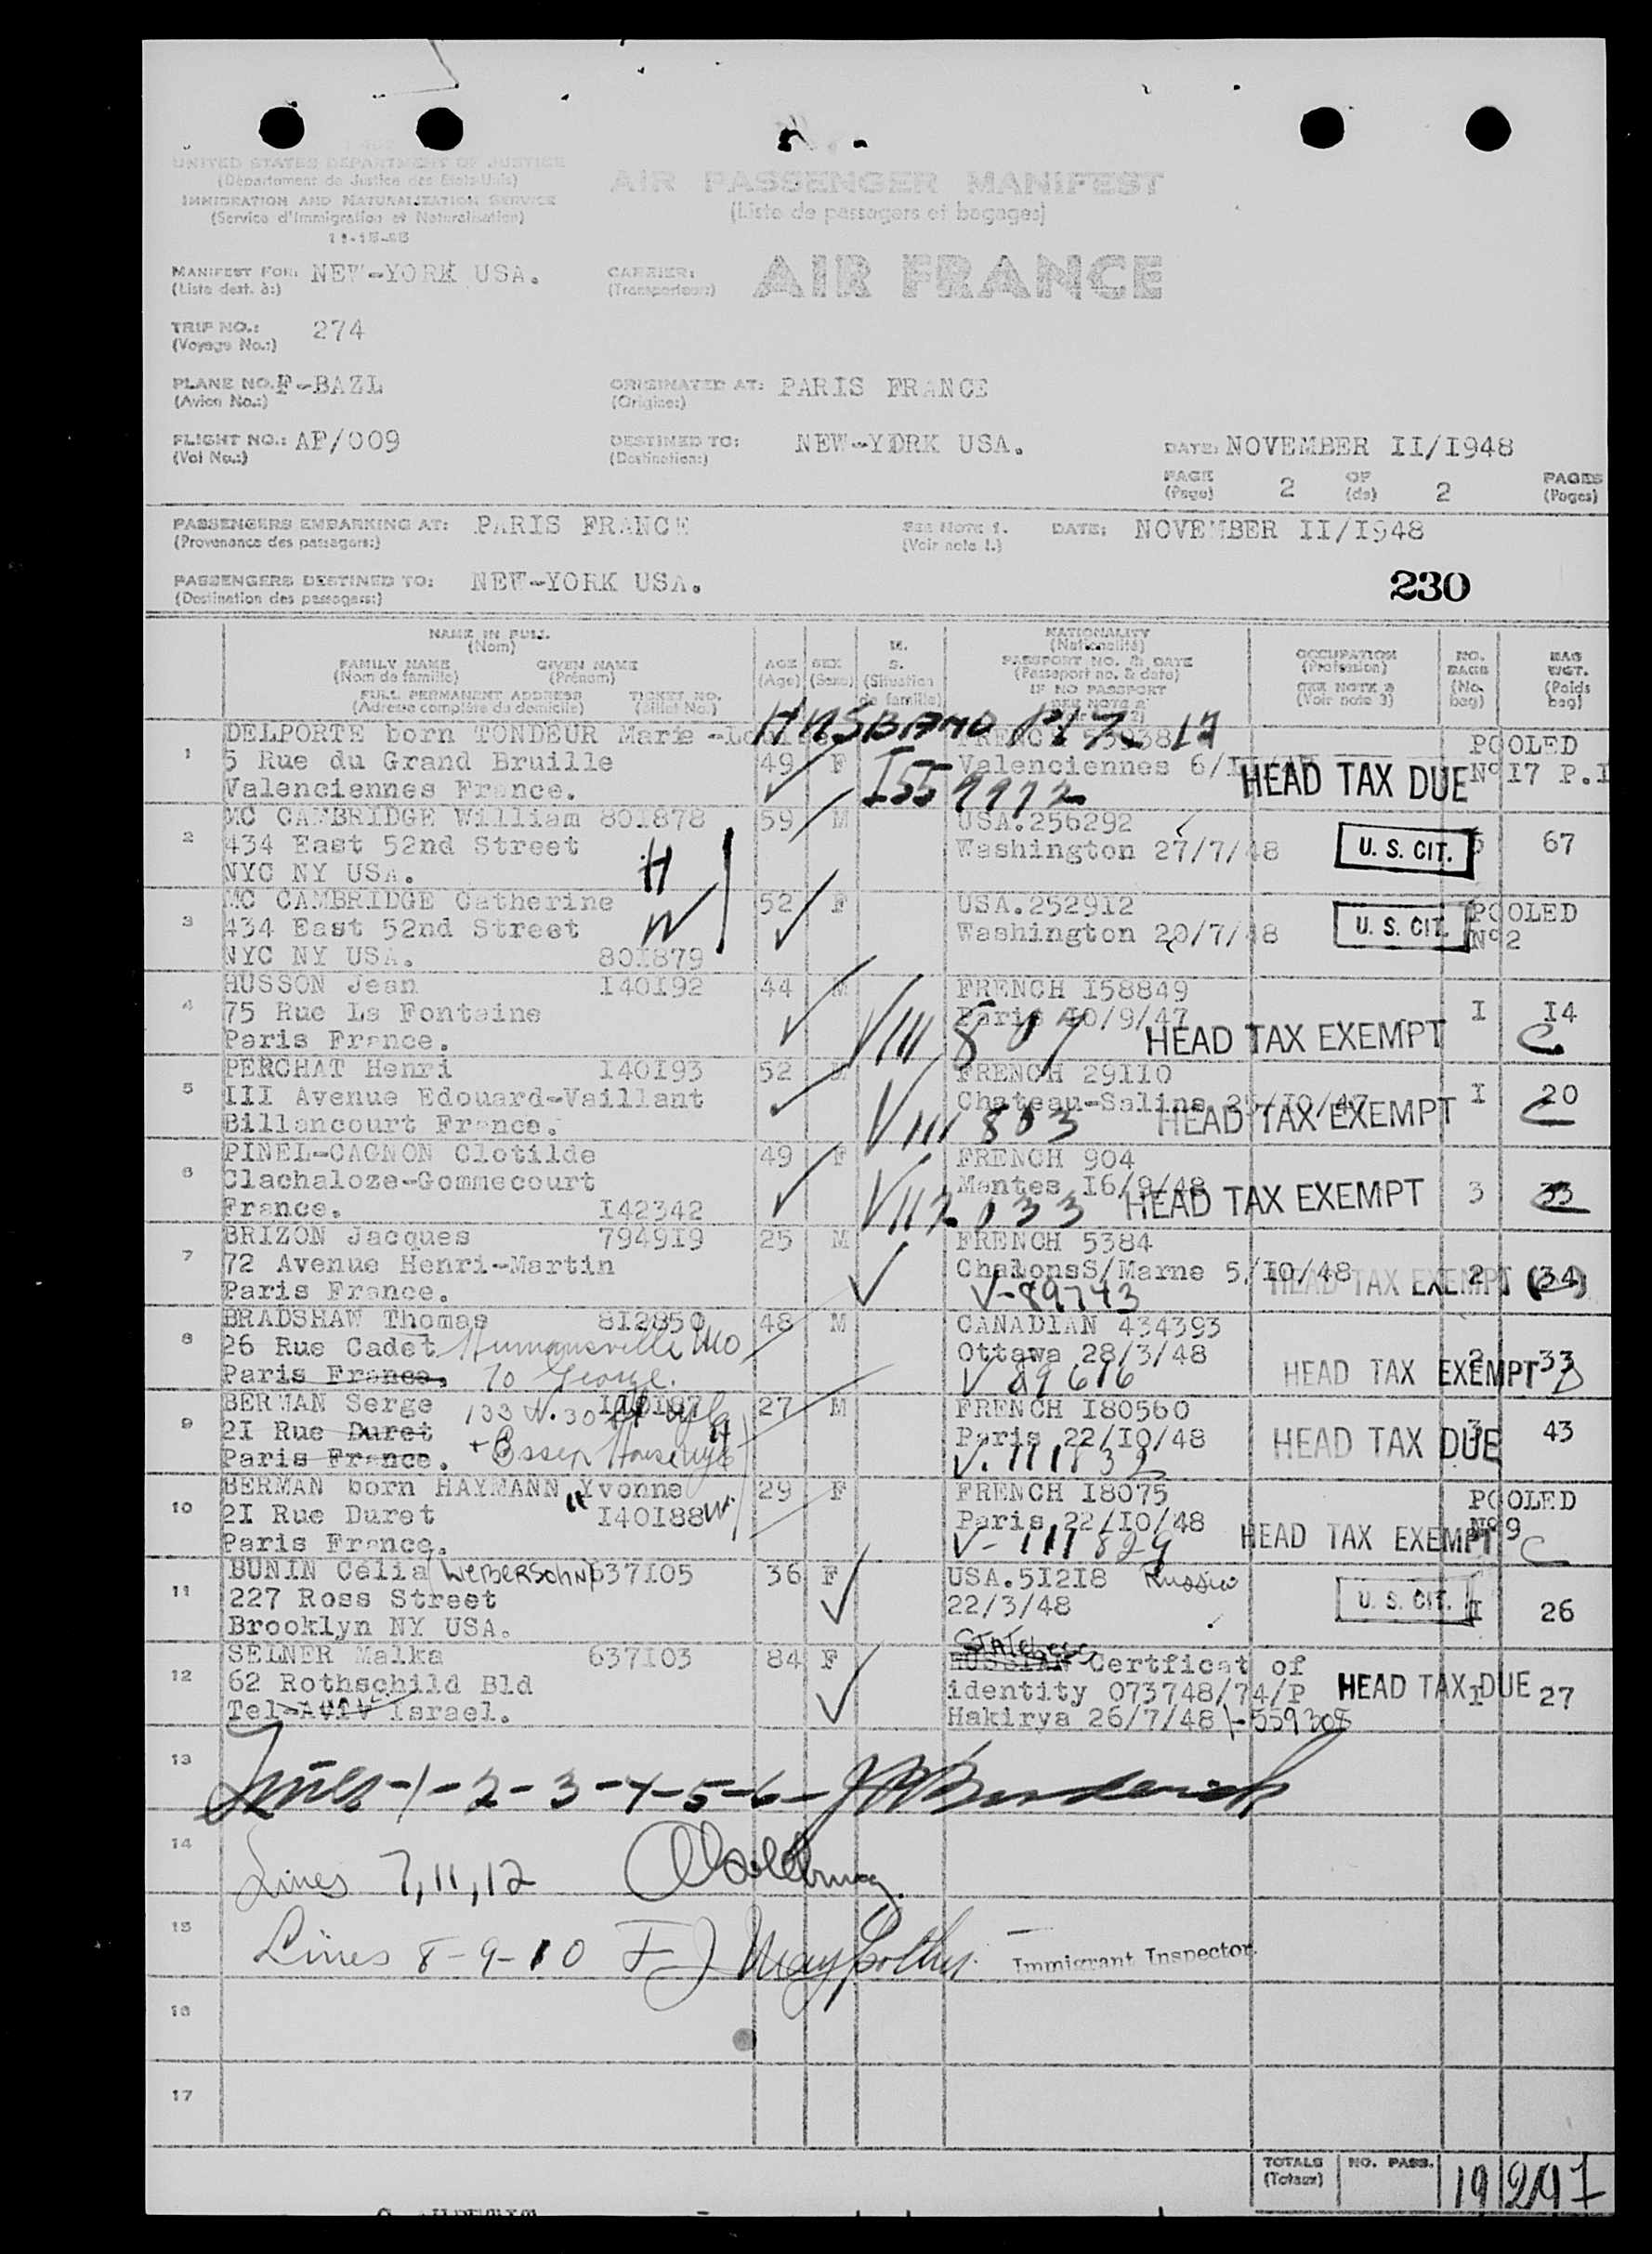 UNITED STATES DEPARTMENT OF JUSTICE
(Département de Justice des Etats-Unis)
IMMIGRATION AND NATURALIZATION SERVICE
(Service d'Immigration et Naturalisation)
AIR PASSENGER MANIFEST
(Liste de passagers et bagages)
MANIFEST FOR: NEW-YORK USA.
(Liste dest. à:)
CARRIER: AIR FRANCE
(Transporteur:)
TRIP NO.: 274
(Voyage No.:)
PLANE NO. F-BAZL
(Avion No.:)
ORIGINATED AT: PARIS FRANCE
(Origine:)
FLIGHT NO.: AF/009
(Vol No.:)
DESTINED TO: NEW-YORK USA.
(Destination:)
DATE: NOVEMBER II/I948
PAGE 2 OF 2 PAGES
(Page) (de) (Pages)
PASSENGERS EMBARKING AT: PARIS FRANCE
(Provenance des passagers:)
See Note 1.
(Voir note 1.)
DATE: NOVEMBER II/I948
PASSENGERS DESTINED TO: NEW-YORK USA.
(Destination des passagers:)
230
NAME IN FULL
(Nom)
FAMILY NAME GIVEN NAME
(Nom de famille) (Prénom)
FULL PERMANENT ADDRESS TICKET NO.
(Adresse complète du domicile) (Billet No.)
AGE
(Age)
SEX
(Sexe)
M.
S.
(Situation
de famille)
NATIONALITY
(Nationalité)
PASSPORT NO. & DATE
(Passeport no. & date)
IF NO PASSPORT
SEE NOTE 2
OCCUPATION
(Profession)
SEE NOTE 3
(Voir note 3)
NO.
BAGS
(No.
bag)
BAG
WGT.
(Poids
bag)
1 DELPORTE born TONDEUR Marie-Louise
HUSBAND P1 L 17
5 Rue du Grand Bruille 49 F Valenciennes
Valenciennes France.
I559972
HEAD TAX DUE
POOLED
N°I7 P.I
2 MC CAMBRIDGE William 80I878 59 M USA.256292
434 East 52nd Street Washington 27/7/48 U. S. CIT. 67
NYC NY USA. H
3 MC CAMBRIDGE Catherine 52 F USA.252912 POOLED
434 East 52nd Street W Washington 20/7/48 U. S. CIT. N°2
NYC NY USA. 80I879
4 HUSSON Jean I40I92 44 M FRENCH I58849
75 Rue La Fontaine Paris I0/9/47 I I4
Paris France. V111807 HEAD TAX EXEMPT C
5 PERCHAT Henri I40I93 52 M FRENCH 29110
III Avenue Edouard-Vaillant Chateau-Salins I 20
Billancourt France. V111803 HEAD TAX EXEMPT C
6 PINEL-CAGNON Clotilde 49 F FRENCH 904
Clachaloze-Gommecourt Mantes I6/9/48 3 33
France. I42342 V112033 HEAD TAX EXEMPT
7 BRIZON Jacques 794919 25 M FRENCH 5384
72 Avenue Henri-Martin ChalonsS/Marne 5/I0/48 2 (34)
Paris France. V-89743 HEAD TAX EXEMPT
8 BRADSHAW Thomas 812850 48 M CANADIAN 434393
26 Rue Cadet Humansville Mo Ottawa 28/3/48 2 33
Paris France. To George. V 89616 HEAD TAX EXEMPT
9 BERMAN Serge I40I87 27 M FRENCH I80560
133 W. 30
2I Rue Duret H Paris 22/I0/48 HEAD TAX DUE 3 43
Paris France. + Essex House NYC V.111832
10 BERMAN born HAYMANN Yvonne 29 F FRENCH I8075 POOLED
2I Rue Duret I40I88 W Paris 22/I0/48 N°9
Paris France. V-111829 HEAD TAX EXEMPT C
11 BUNIN Celia (WEBERSOHN) 637I05 36 F USA.5I2I8 Russia
227 Ross Street 22/3/48 U. S. CIT. I 26
Brooklyn NY USA.
12 SELNER Malka 637I03 84 F STATELESS RUSSIAN Certficat of
62 Rothschild Bld identity 073748/74/P HEAD TAX DUE I 27
Tel-Aviv Israel. Hakirya 26/7/48 -559308
13 Lines-1-2-3-4-5-6- Broderick
14 Lines 7,11,12
15 Lines 8-9-10 F J
Immigrant Inspector.
16
17
TOTALS
(Totaux)
NO. PASS.
19 297